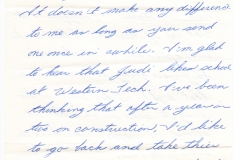 It doesn't make any difference
to me as long as you send
one once in awhile. I'm glad
to hear that Judi likes school
at Western Tech. I've been
thinking that after a year or
two on construction, I'd like
to go back and take their